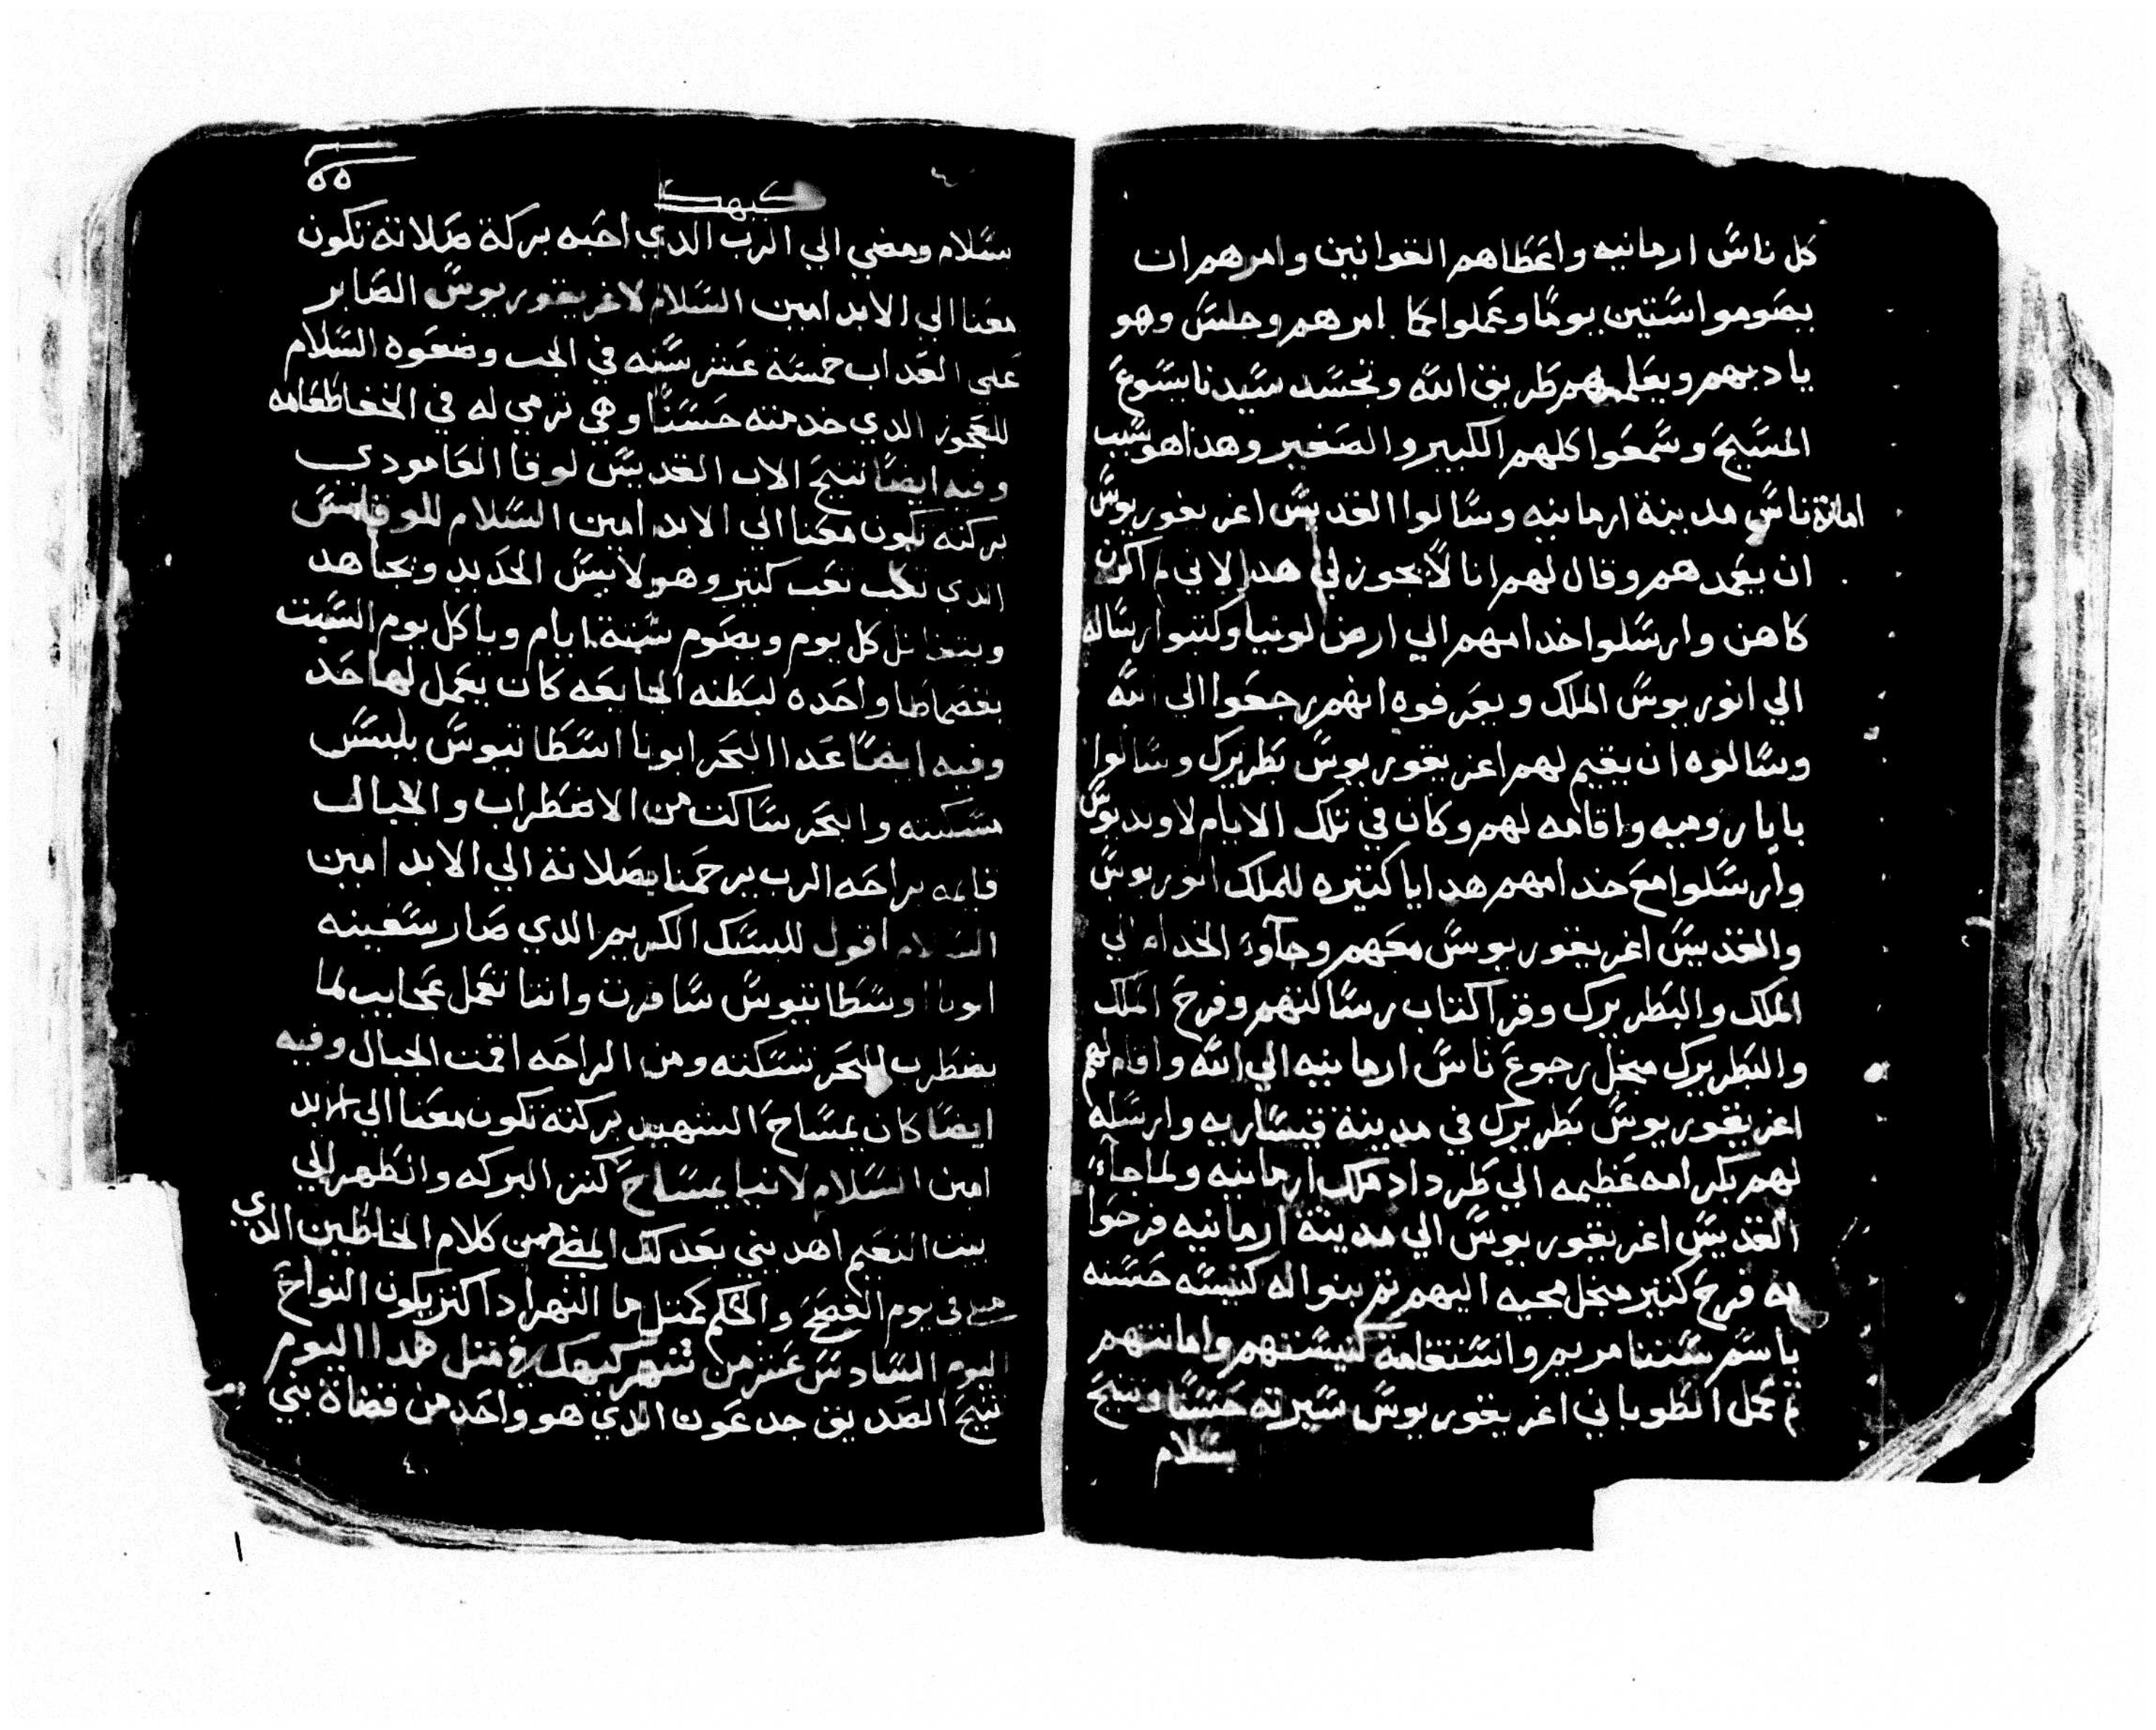 كل ناس ارمانيه واعطاهم القوانين وامرهم ان
يصوموا ستين يوما وعملوا كما امرهم وجلس وهو
يادبهم ويعلمهم طريق الله وتجسد سيدنا يسوع
المسيح وسمعوا كلهم الكبير والصغير وهدا هو سبب
امانة ناس مدينة ارمانيه وسالوا القديس اغريغوريوس
ان يعمدهم وقال لهم انا لا يجوز لي هدا لاني لم اكن
كاهن وارسلوا خدامهم الي ارض لونيا وكتبوا رساله
الي انوريوس الملك ويعرفوه انهم رجعوا الي الله
وسالوه ان يقيم لهم اغريغوريوس بطريرك وسالوا
بابا روميه واقامه لهم وكان في تلك الايام لاونديوس
وارسلوا مع خدامهم هدايا كتيره للملك انوريوس
والقديس اغريغوريوس معهم وجآوء الخدام الي
الملك والبطريرك وقرا كتاب رسالتهم وفرح الملك
والبطريرك منجل رجوع ناس ارمانيه الي الله واقام لهم
اغريغوريوس بطريرك في مدينة قيساريه وارسله
لهم بكرامه عظيمه الي طرداد ملك ارمانيه ولما جآء
القديس اغريغوريوس الي مدينة ارمانيه فرحوا
به فرح كتير منجل مجيه اليهم تم بنوا له كنيسه حسنه
باسم ستنا مريم واستقامة كنيستهم وامانتهم
تم عمل الطوباني اغريغوريوس سيرته حسنا وتنيح
بسلام
٥٥
كيهك
بسلام ومضي الي الرب الدي احبه بركة صلاته تكون
معنا الي الابد امين السلام لاغريغوريوس الصابر
علي العداب خمسة عشر سنه في الجب وضعوه السلام
للعجوز الدي خدمته حسنا وهي ترمي له في الخفا طعامه
وفيه ايضا تنيح الاب القديس لوقا العامودي
بركته تكون معنا الي الابد امين السلام للوقاس
الدي تعب تعب كتير وهو لابس الحديد ويجاهد
كل يوم ويصوم ستة ايام وياكل يوم السبت
بقصماطا واحده لبطنه الجايعه كان يعمل لها حد
وفيه ايضا عدا البحر ابونا اسطاتيوس بلبس
مسكنته والبحر ساكت من الاضطراب والجبال
قايمه براحه الرب يرحمنا بصلاته الي الابد امين
السلام اقول للبسك الكريم الدي صار سفينه
ابونا اوسطاتيوس سافرت وانتا تعمل عجايب لما
يضطرب البحر تسكته ومن الراحه اقمت الجبال وفيه
ايضا كان يمساح الشهيد بركته تكون معنا الي الابد
امين السلام لانبا يمساح كنز البركه وانظهر الي
بيت النعيم اهديني بعد كتل من كلام الخاطين الدي
في يوم الفصح والحكم كمتل ما النهر ادا كتر يكون النواح
اليوم السادس عشر من شهر كيهك في متل هدا اليوم
تنيح الصديق جدعون الدي هو واحد من قضاة بني